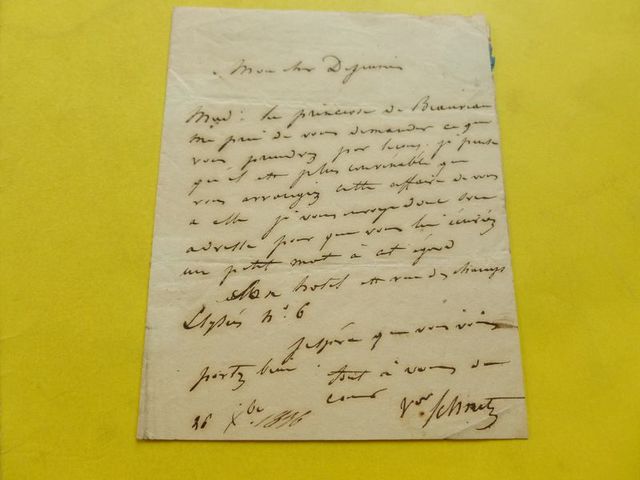 Mon cher
Mad: la princesse de Beauveau
me prie de vous demander ce que
vous prendrez par leçons. je pense
qu'il est plus convenable que
vous arrangiez cette affaire de vous
a elle je vous envoye donc son
adresse pour que vous lui écriviez
un petit mot à cet égard
Son hotel est rue des champs
Elysées N°. 6
J'espère que vous vous
portez bien tout à vous de
coeur
26 Xbre